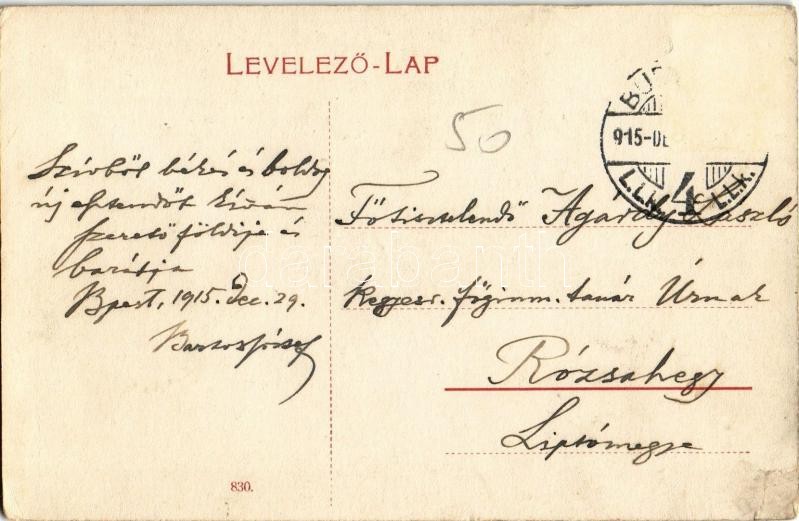 LEVELEZŐ-LAP
50
BU
915-DE
L.L.K. 4 L.L.K.
Szívből békés és boldog
új esztendőt kíván
szerető földije és
barátja
Bpest, 1915. dec. 29.
Bartos József
Főtisztelendő Agárdy László
kegyesr. főgimn. tanár Úrnak
Rózsahegy
Liptómegye
830.
darabanth